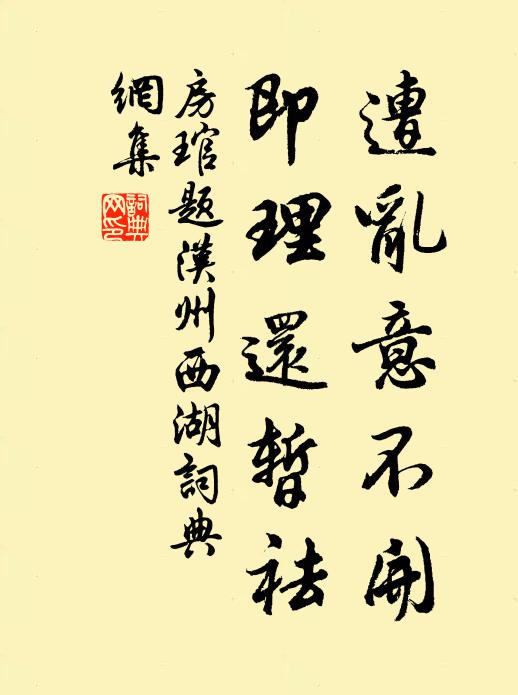 遭亂意不開
即理還暫祛
房琯題漢州西湖詞典
網集
詞典
网印